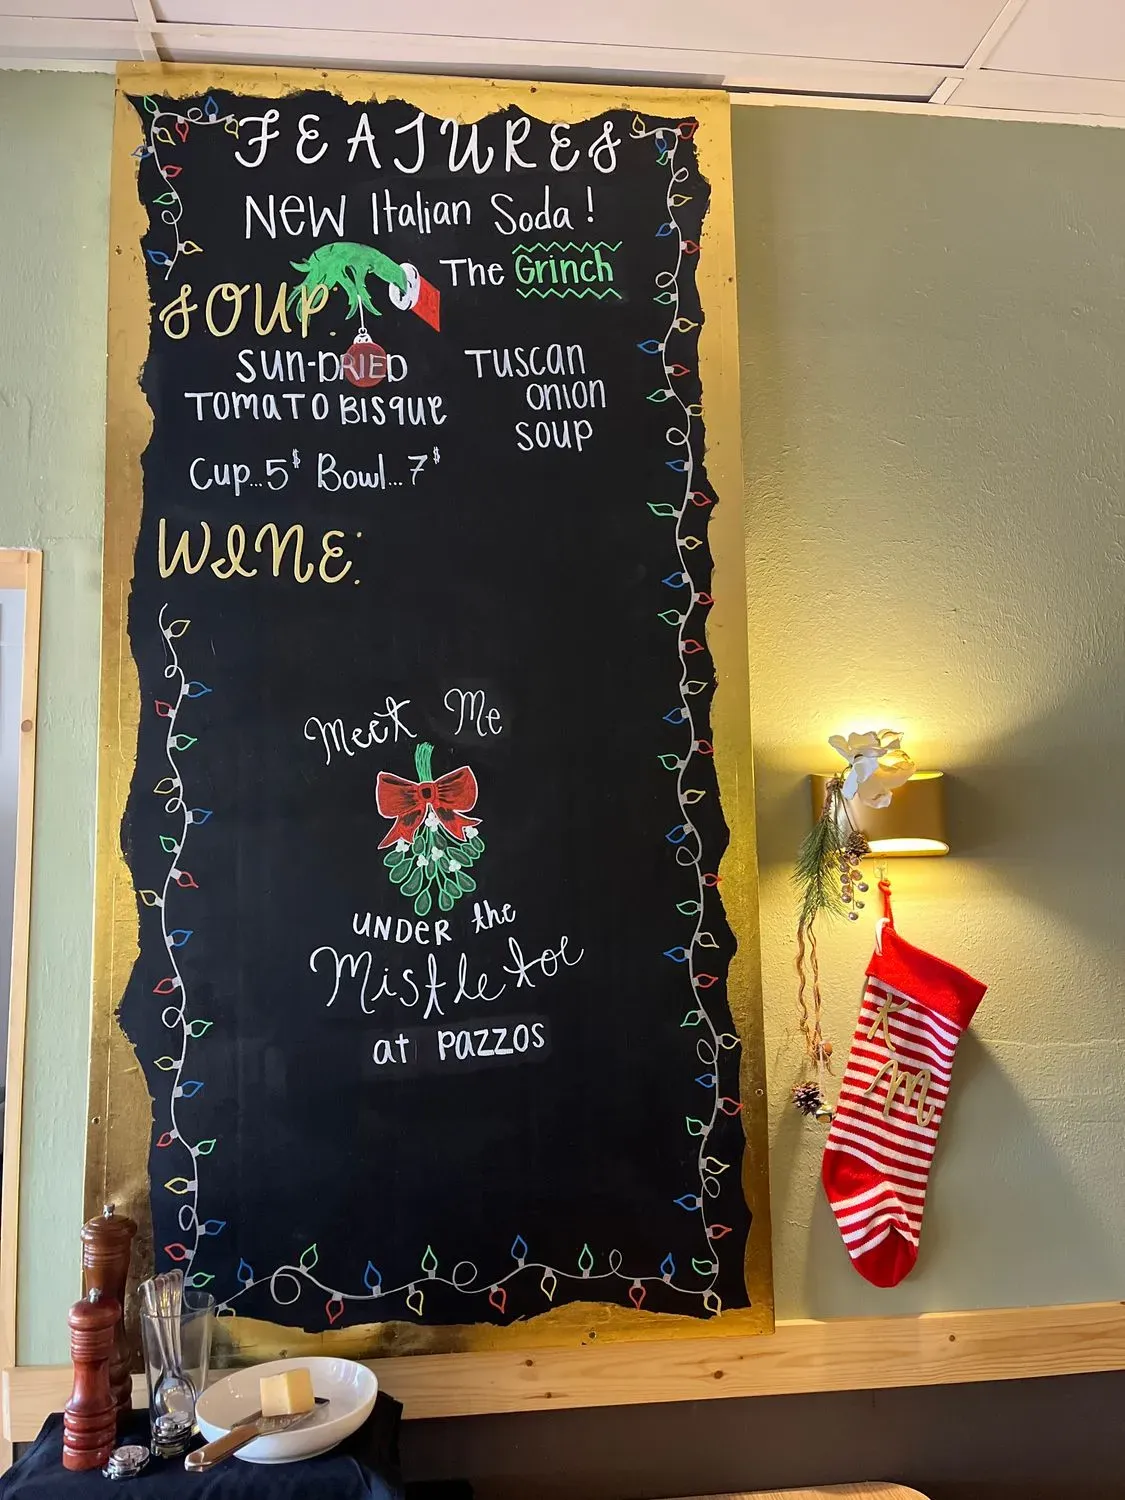 FEATURES
New Italian Soda!
The Grinch
SOUP:
SUN-DRIED
TOMATO BISQUE
TUSCAN
ONION
SOUP
Cup...5$ Bowl...7$
WINE:
Meet Me
UNDER the
Mistletoe
at PAZZOS
K
M